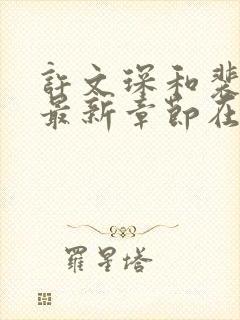 許文琛和裴
最新章節在
羅星塔